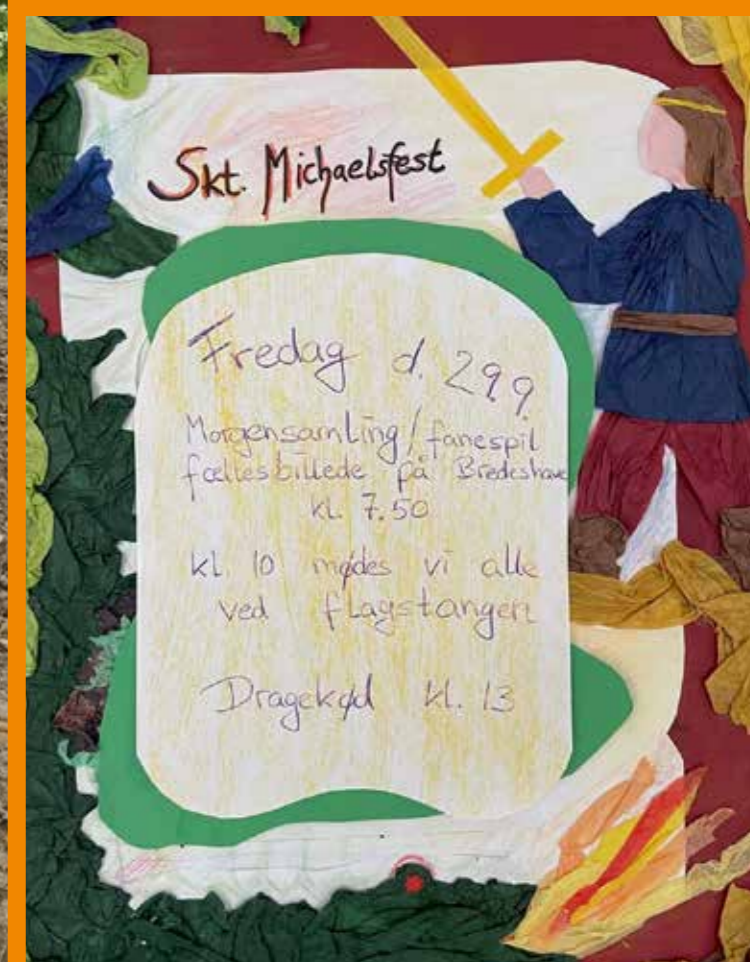 Skt. Michaelsfest
Fredag d. 29.9.
Morgensamling / fanespil
fællesbillede på Bredeshave
kl. 7.50
kl. 10 mødes vi alle
ved flagstangen
Dragekød kl. 13